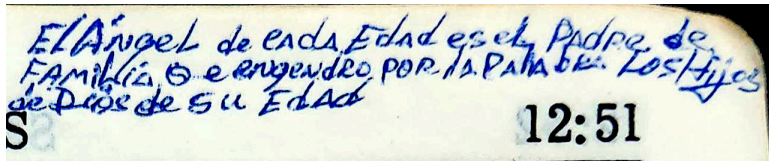 El Ángel de cada Edad es el Padre de
Familia Q e engendro por la Palabra Los Hijos
de Dios de su Edad
S 12:51